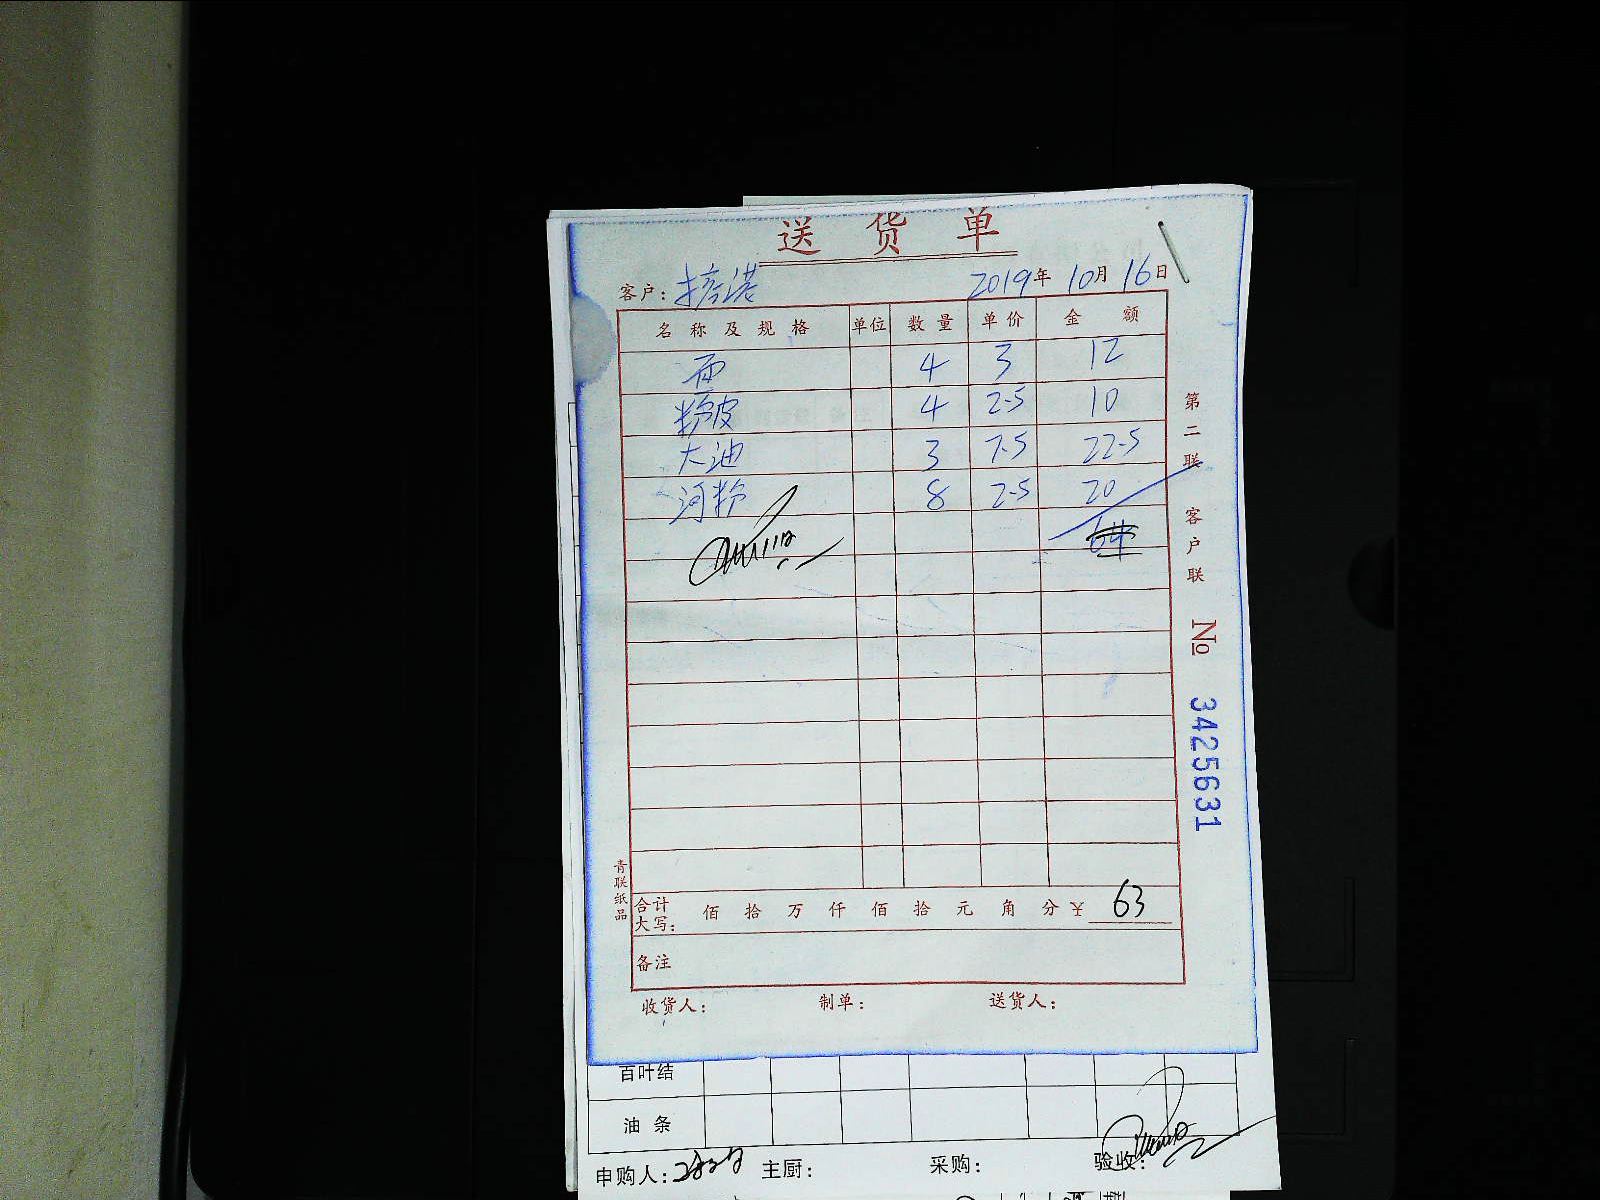 送货单
客户: 2019年10月16日
名称及规格 单位 数量 单价 金额
面 4 3 12
粉皮 4 2.5 10
大油 3 7.5 22.5
河粉 8 2.5 20
合计大写: 佰 拾 万 仟 佰 拾 元 角 分 ¥ 63
备注
收货人: 制单: 送货人:
第二联 客户联 No 3425631
青联纸品
百叶结
油条
申购人: 主厨: 采购: 验收: